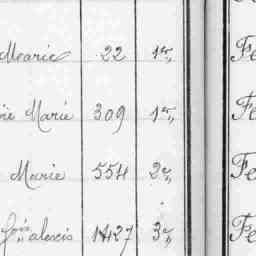 Marie 22 1er Fe
Marie 309 1er Fe
Marie 554 2e Fe
fois alexis 1427 3e Fe